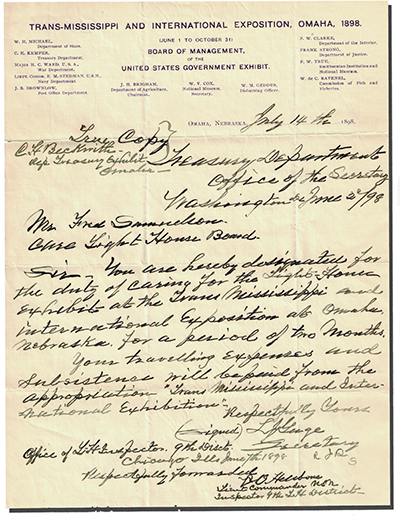 TRANS-MISSISSIPPI AND INTERNATIONAL EXPOSITION, OMAHA, 1898.
(JUNE 1 TO OCTOBER 31)
BOARD OF MANAGEMENT,
OF THE
UNITED STATES GOVERNMENT EXHIBIT.
W. H. MICHAEL,
Department of State.
C. E. KEMPER,
Treasury Department.
Major H. C. WARD, U. S. A.,
War Department.
Lieut. Comdr. E. M. STEDMAN, U. S. N.,
Navy Department.
J. B. BROWNLOW,
Post Office Department.
J. H. BRIGHAM,
Department of Agriculture,
Chairman.
W. V. COX,
National Museum,
Secretary.
W. M. GEDDES,
Disbursing Officer.
F. W. CLARKE,
Department of the Interior.
FRANK STRONG,
Department of Justice.
F. W. TRUE,
Smithsonian Institution and
National Museum.
W. de C. RAVENEL,
Commission of Fish and
Fisheries.
OMAHA, NEBRASKA, July 14th 1898.
True Copy
C. F. Beckwith
dep. Treasury Exhibit
Omaha
Treasury Department
Office of the Secretary
Washington June 2/98
Mr Fred Samuelson
Care Light House Board
Sir - You are hereby designated for
the duty of caring for the Light-House
exhibit at the Trans Mississippi and
international Exposition at Omaha,
Nebraska, for a period of two months.
Your travelling expenses and
Subsistence will be paid from the
appropriation "Trans Mississippi and Inter-
national Exhibition".
Respectfully Yours
(Signed) L J Gage
Secretary
Office of L. H. Inspector, 9th Dist.
Chicago Ills June 7th 1898
Respectfully forwarded
Commander U.S.N.
Inspector 9th L. H. District